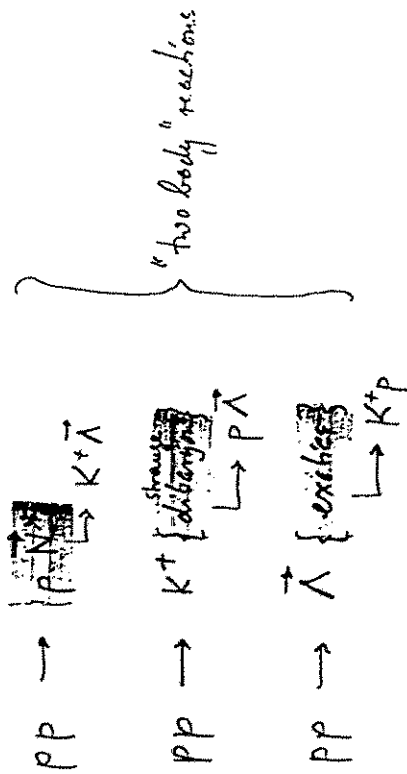 pp → p N*
↳ K⁺ Λ⃗
pp → K⁺ { strange dibaryons }
↳ p Λ⃗
pp → Λ⃗ { exotics }
↳ K⁺ p
"two body" reactions